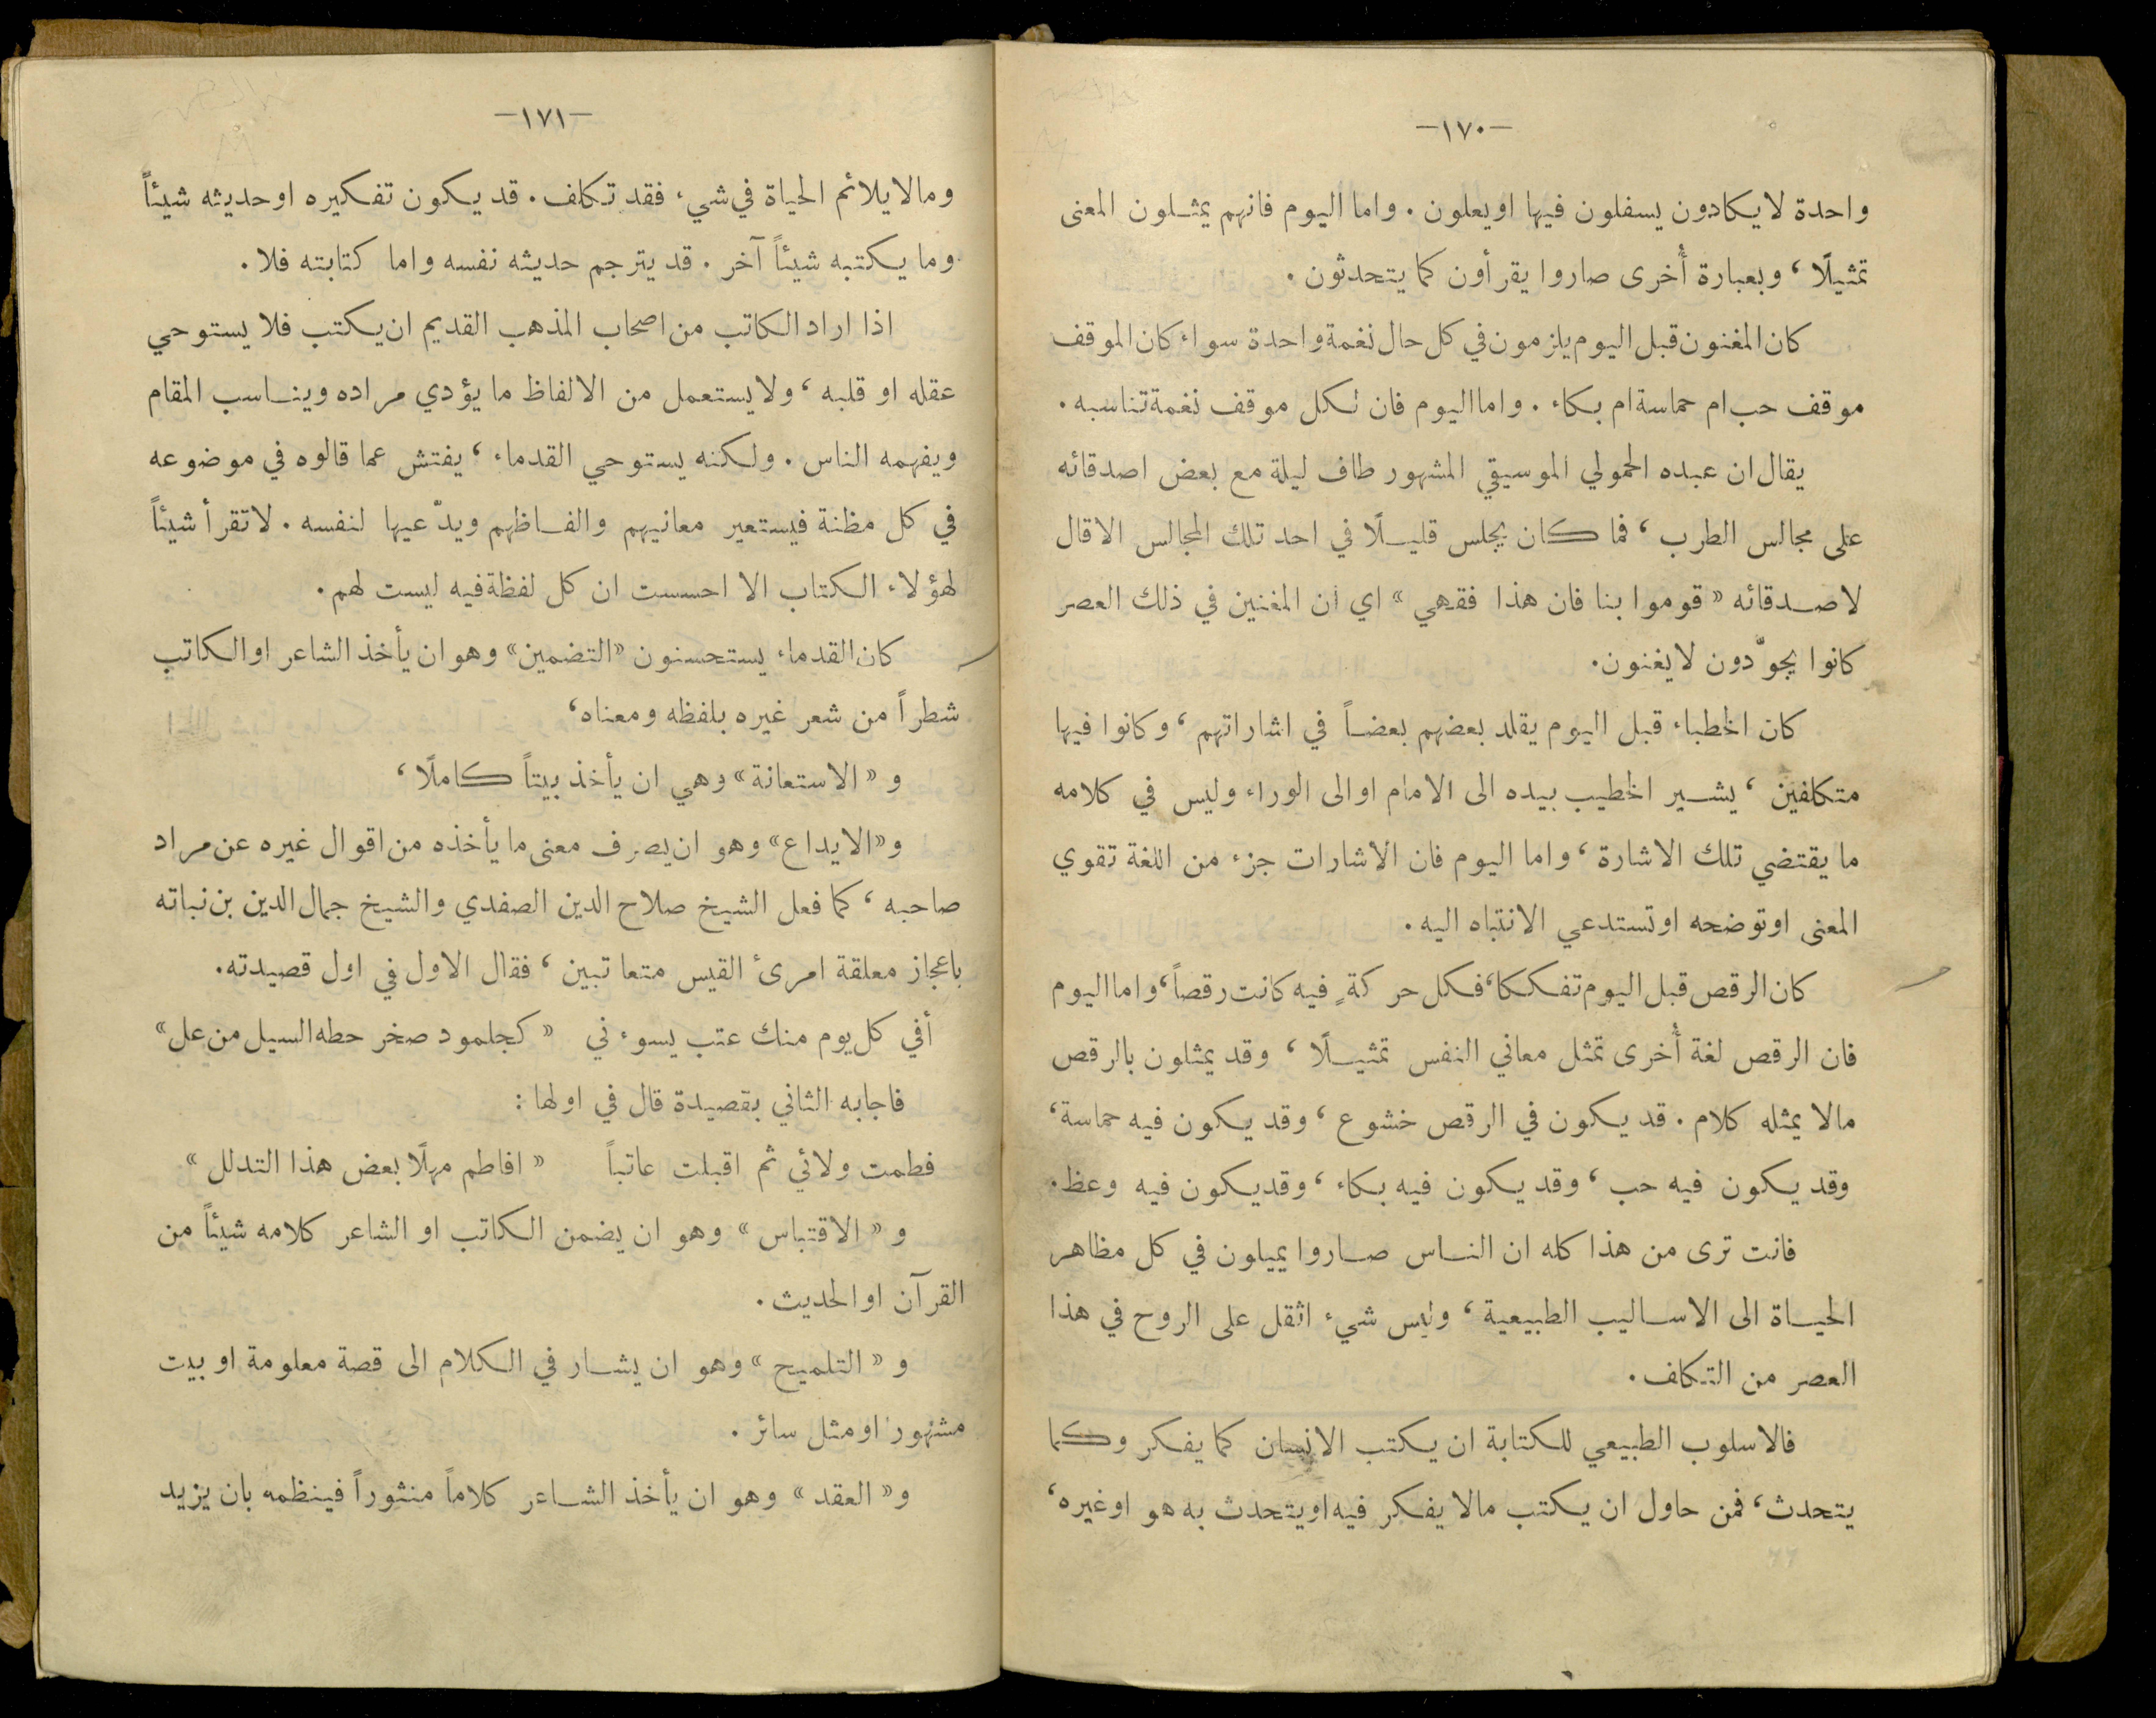 —١٧٠—
واحدة لا يكادون يسفلون فيها او يعلون . واما اليوم فانهم يمثلون المعنى
تمثيلًا ، وبعبارة أُخرى صاروا يقرأون كما يتحدثون .
كان المغنون قبل اليوم يلزمون في كل حال نغمة واحدة سواء كان الموقف
موقف حب ام حماسة ام بكاء . واما اليوم فان لكل موقف نغمة تناسبه .
يقال ان عبده الحمولي الموسيقي المشهور طاف ليلة مع بعض اصدقائه
على مجالس الطرب ، فما كان يجلس قليلًا في احد تلك المجالس الا قال
لاصدقائه « قوموا بنا فان هذا فقهي » اي ان المغنين في ذلك العصر
كانوا يجوّدون لا يغنون .
كان الخطباء قبل اليوم يقلد بعضهم بعضاً في اشاراتهم ، وكانوا فيها
متكلفين ، يشير الخطيب بيده الى الامام او الى الوراء وليس في كلامه
ما يقتضي تلك الاشارة ، واما اليوم فان الاشارات جزء من اللغة تقوي
المعنى او توضحه او تستدعي الانتباه اليه .
كان الرقص قبل اليوم تفككا ، فكل حركةٍ فيه كانت رقصاً ، واما اليوم
فان الرقص لغة أُخرى تمثل معاني النفس تمثيلًا ، وقد يمثلون بالرقص
مالا يمثله كلام . قد يكون في الرقص خشوع ، وقد يكون فيه حماسة ،
وقد يكون فيه حب ، وقد يكون فيه بكاء ، وقد يكون فيه وعظ .
فانت ترى من هذا كله ان الناس صاروا يميلون في كل مظاهر
الحياة الى الاساليب الطبيعية ، وليس شيء اثقل على الروح في هذا
العصر من التكلف .
فالاسلوب الطبيعي للكتابة ان يكتب الانسان كما يفكر وكما
يتحدث ، فمن حاول ان يكتب مالا يفكر فيه او يتحدث به هو او غيره ،
—١٧١—
ومالا يلائم الحياة في شيء فقد تكلف . قد يكون تفكيره او حديثه شيئاً
وما يكتبه شيئاً آخر . قد يترجم حديثه نفسه واما كتابته فلا .
اذا اراد الكاتب من اصحاب المذهب القديم ان يكتب فلا يستوحي
عقله او قلبه ، ولا يستعمل من الالفاظ ما يؤدي مراده ويناسب المقام
ويفهمه الناس . ولكنه يستوحي القدماء ، يفتش عما قالوه في موضوعه
في كل مظنة فيستعير معانيهم والفاظهم ويدّعيها لنفسه . لا تقرأ شيئاً
لهؤلاء الكتاب الا احسست ان كل لفظة فيه ليست لهم .
كان القدماء يستحسنون « التضمين » وهو ان يأخذ الشاعر او الكاتب
شطراً من شعر غيره بلفظه ومعناه ،
و « الاستعانة » وهي ان يأخذ بيتاً كاملًا ،
و « الايداع » وهو ان يصرف معنى ما يأخذه من اقوال غيره عن مراد
صاحبه ، كما فعل الشيخ صلاح الدين الصفدي والشيخ جمال الدين بن نباته
باعجاز معلقة امرئ القيس متعاتبين ، فقال الاول في اول قصيدته .
أفي كل يوم منك عتب يسوءني « كجلمود صخر حطه السيل من عل »
فاجابه الثاني بقصيدة قال في اولها :
فطمت ولائي ثم اقبلت عاتباً « افاطم مهلًا بعض هذا التدلل »
و « الاقتباس » وهو ان يضمن الكاتب او الشاعر كلامه شيئاً من
القرآن او الحديث .
و « التلميح » وهو ان يشار في الكلام الى قصة معلومة او بيت
مشهور او مثل سائر .
و « العقد » وهو ان يأخذ الشاعر كلاماً منثوراً فينظمه بان يزيد